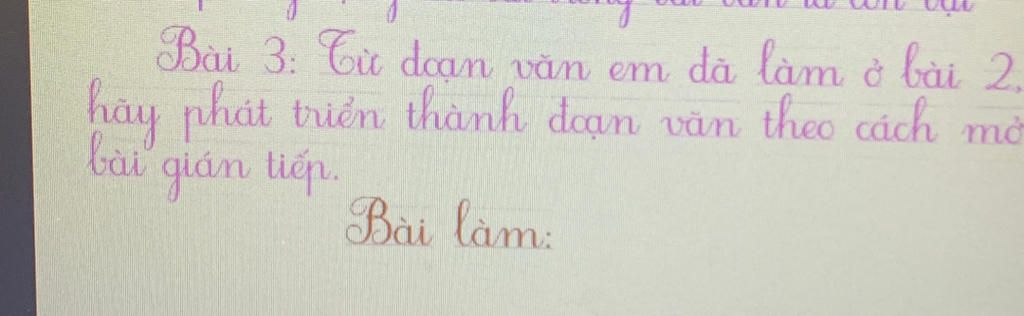 Bài 3: Từ đoạn văn em đã làm ở bài 2,
hãy phát triển thành đoạn văn theo cách mở
bài gián tiếp.
Bài làm: